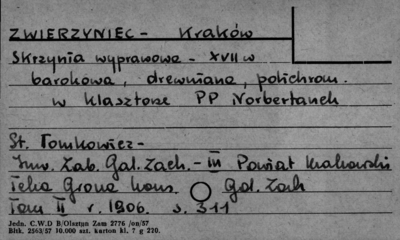 ZWIERZYNIEC - Kraków
Skrzynia wyprawowa - XVII w
barokowa, drewniana, polichrom.
w klasztorze PP Norbertanek
St. Tomkowicz -
Inw. Zab. Gal. Zach. - III Powiat Krakowski
Teka Grona Kons. Gal. Zach
Tom II r. 1906. s. 311
Jedn. C.W.D B/Olsztyn Zam 2776 /en/57
Bltk. 2563/57 10.000 szt. karton kl. 7 g 220.